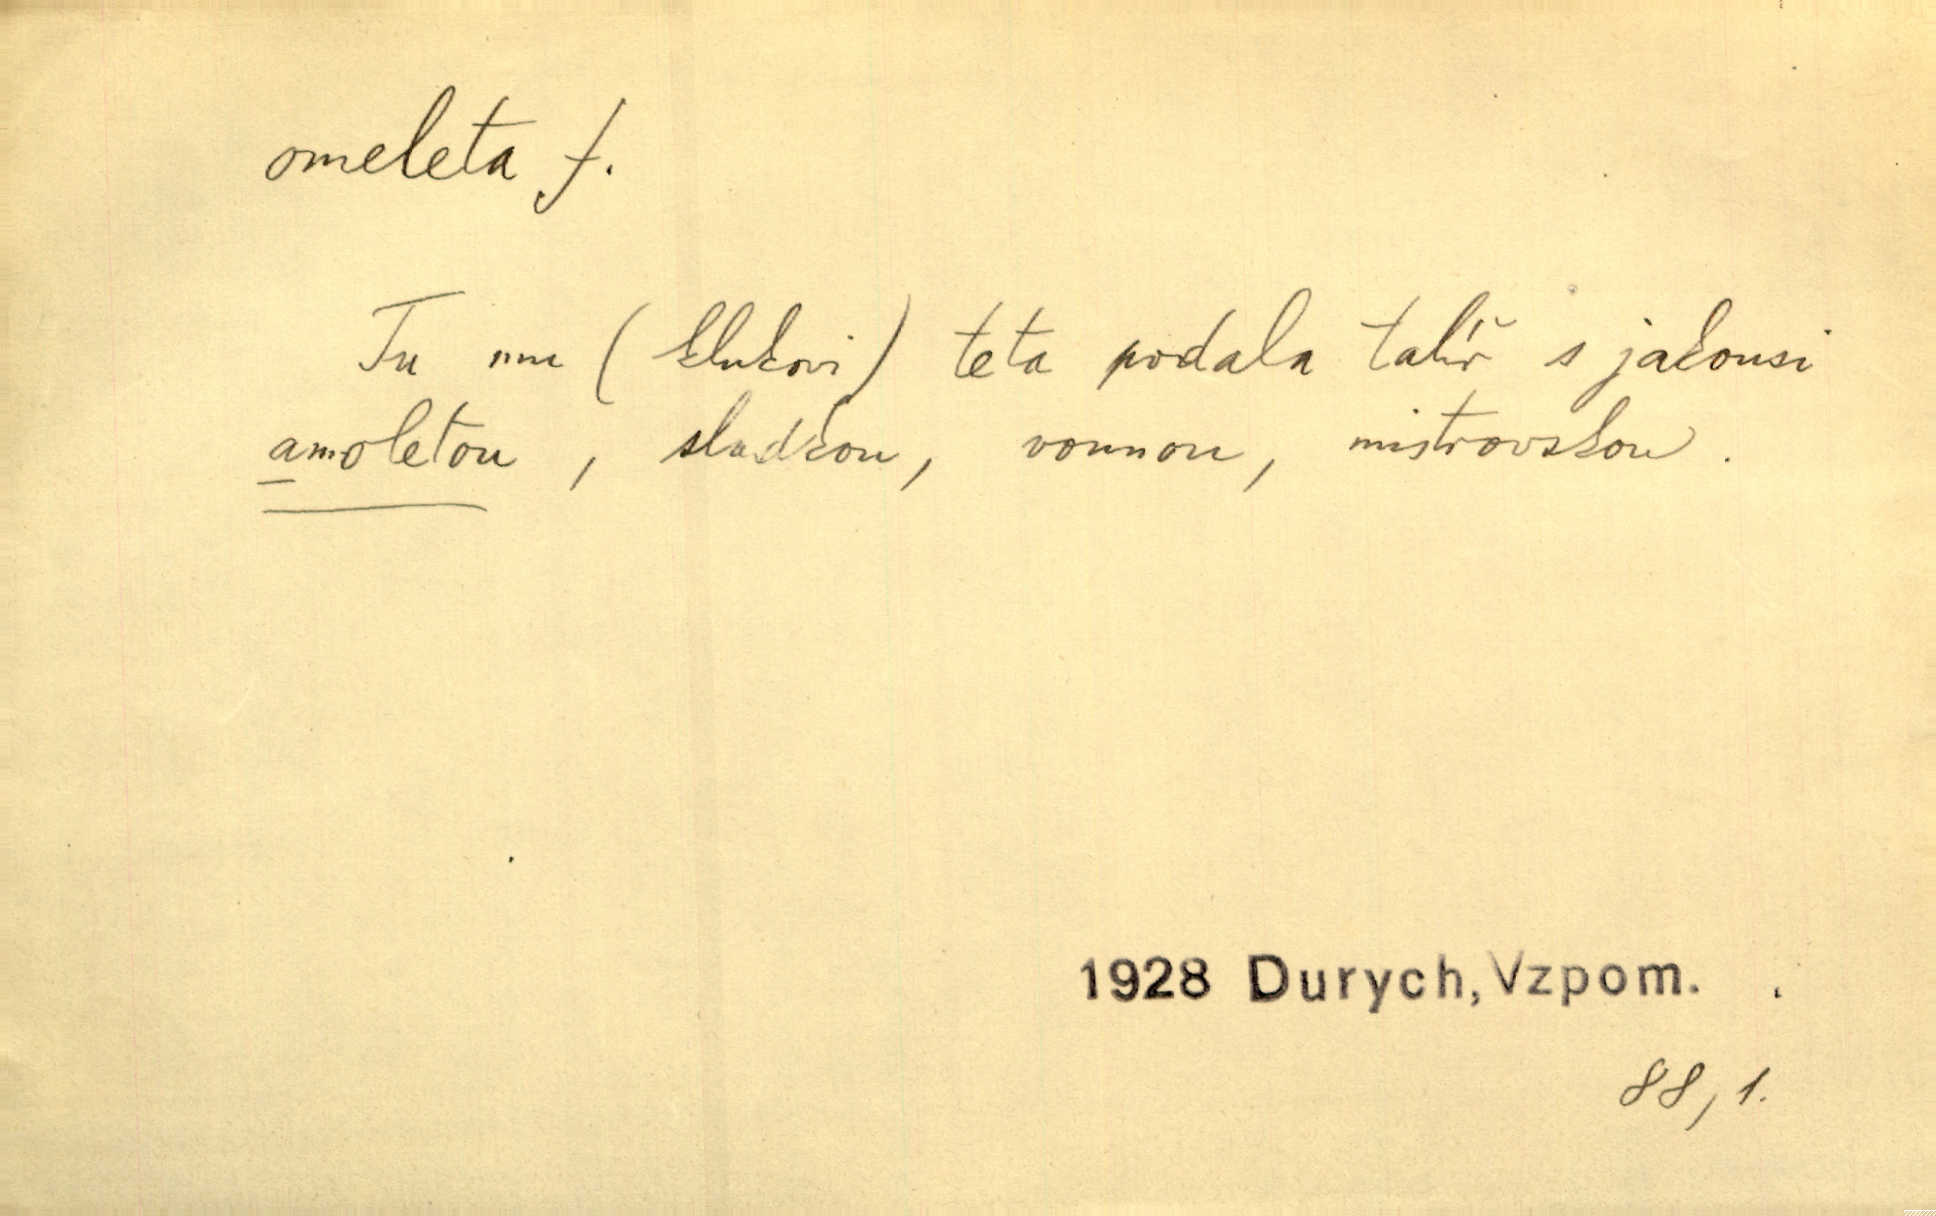 omeleta f.
Tu mu (klukovi) teta podala talíř s jakousi
amoletou, sladkou, vonnou, mistrovskou.
1928 Durych, Vzpom.
88, 1.